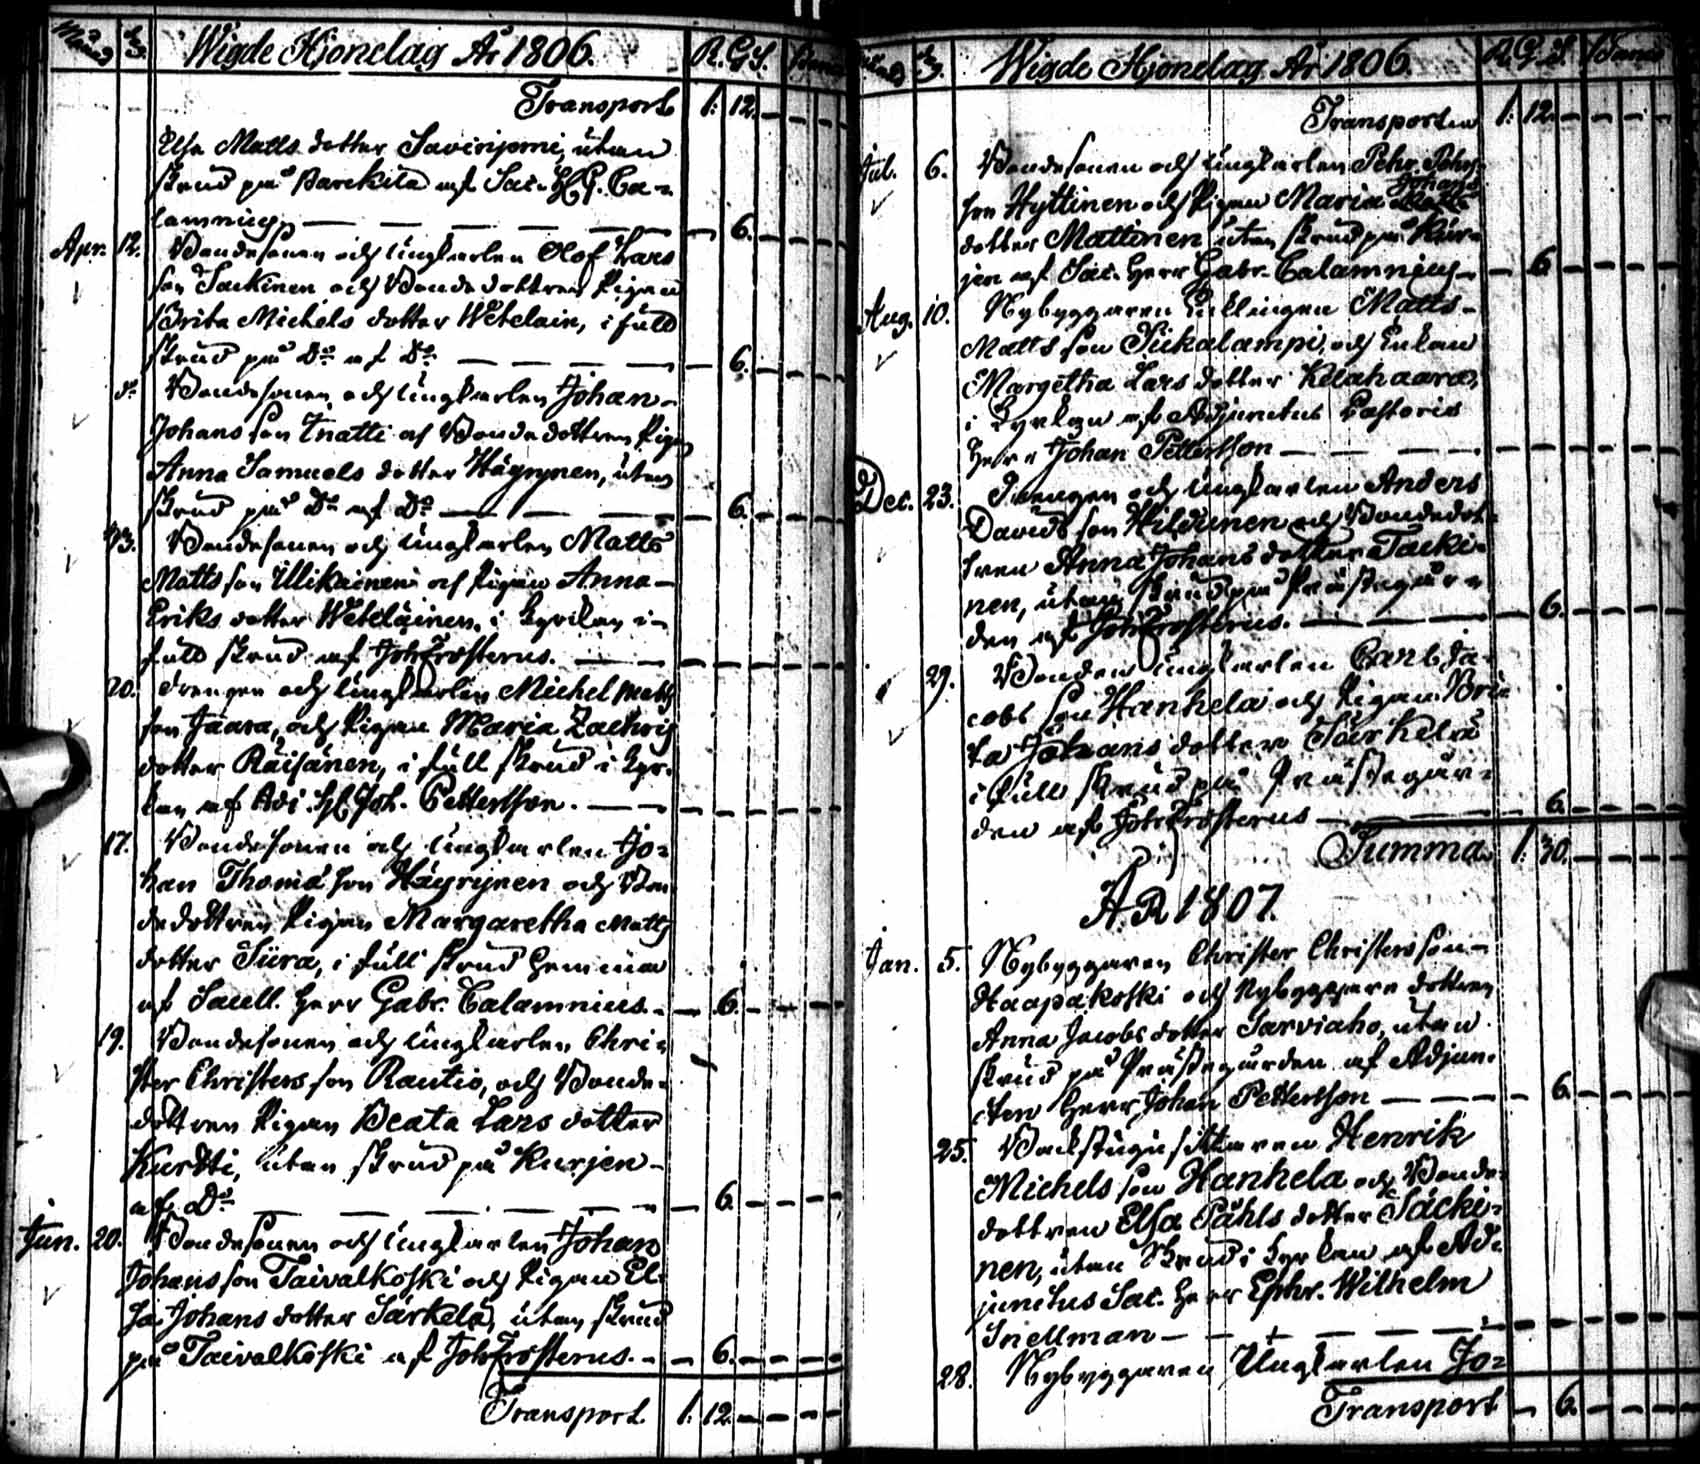 Månad D. Wigde Hjonelag År 1806. R. G. S. Banco
Transport 1: 12.
Elsa Matts dotter Savirijerni, utan
skrud på Barckila af Sac. H. G. Ca-
lamnius 6.
Apr. 12. Bondesonen och Ungkarlen Olof Lars
son Säckinen och Bondedottren Pigan
Brita Michels dotter Wetelain, i full
skrud på Do af Do 6.
do Bondesonen och Ungkarlen Johan
Johans son Tnatti och Bondedottren Pigan
Anna Samuels dotter Häyrynen, utan
skrud på Do af Do 6.
13. Bondesonen och Ungkarlen Matts
Matts son Ullikainen och Pigan Anna
Eriks dotter Weteläinen, i Kyrkan i
full skrud af Joh Frosterus.
20. Drengen och Ungkarlen Michel Matts
son Jaara, och Pigan Maria Zachris
dotter Räisänen, i full skrud i Kyr-
kan af Adj. H. Joh. Pettersson.
17. Bondesonen och Ungkarlen Jo-
han Thomas son Häyrynen och Bon
dedottren Pigan Margaretha Matts
dotter Siira, i full skrud hemma
af Sacell. Herr Gabr. Calamnius 6.
19. Bondesonen och Ungkarlen Chri-
ster Christers son Rautio, och Bonde-
dottren Pigan Beata Lars dotter
Kurtti, utan skrud på Kurjen
af Do 6.
Jun. 20. Bondesonen och Ungkarlen Johan
Johans son Taivalkoski och Pigan El-
sa Johans dotter Särkelä, utan skrud
på Taivalkoski af Joh Frosterus. 6.
Transport 1: 12.
D. Wigde Hjonelag År 1806. R. G. S. Banco
Transport 1: 12.
Jul. 6. Bondesonen och Ungkarlen Pehr Pehrs
Johans
son Hyttinen och Pigan Maria Matts
dotter Mattinen utan skrud på Kur-
jen af Sac. Herr Gabr. Calamnius 6.
Aug. 10. Nybyggaren Enklingen Matts
Matts son Siikalampi, och Enkan
Margetha Lars dotter Kelahaara,
i Kyrkan af Adjunctus Pastoris
Herr Johan Pettersson
Dec. 23. Drengen och Ungkarlen Anders
Davids son Hildunen och Bondedot-
tren Anna Johans dotter Tacki-
nen, utan skrud på Prästegår-
den af Joh Frosterus. 6.
29. Bonden Ungkarlen Carl Ja-
cobs son Hanhela och Pigan Bri-
ta Johans dotter Särkelä
i full skrud på Prästegår-
den af Joh Frosterus 6.
Summa 1: 30.
ÅR 1807.
Jan. 5. Nybyggaren Christer Christersson
Haapakoski och Nybyggare dottren
Anna Jacobs dotter Sarviaho, utan
skrud på Prästegården af Adjun-
cten Herr Johan Pettersson 6.
25. Backstugusittaren Henrik
Michels son Hanhela och Bonde-
dottren Elsa Påhls dotter Säcki-
nen, utan skrud i Kyrkan af Ad-
junctus Sac. Herr Ephr. Wilhelm
Snellman
28. Nybyggaren Ungkarlen Jo-
Transport 6.